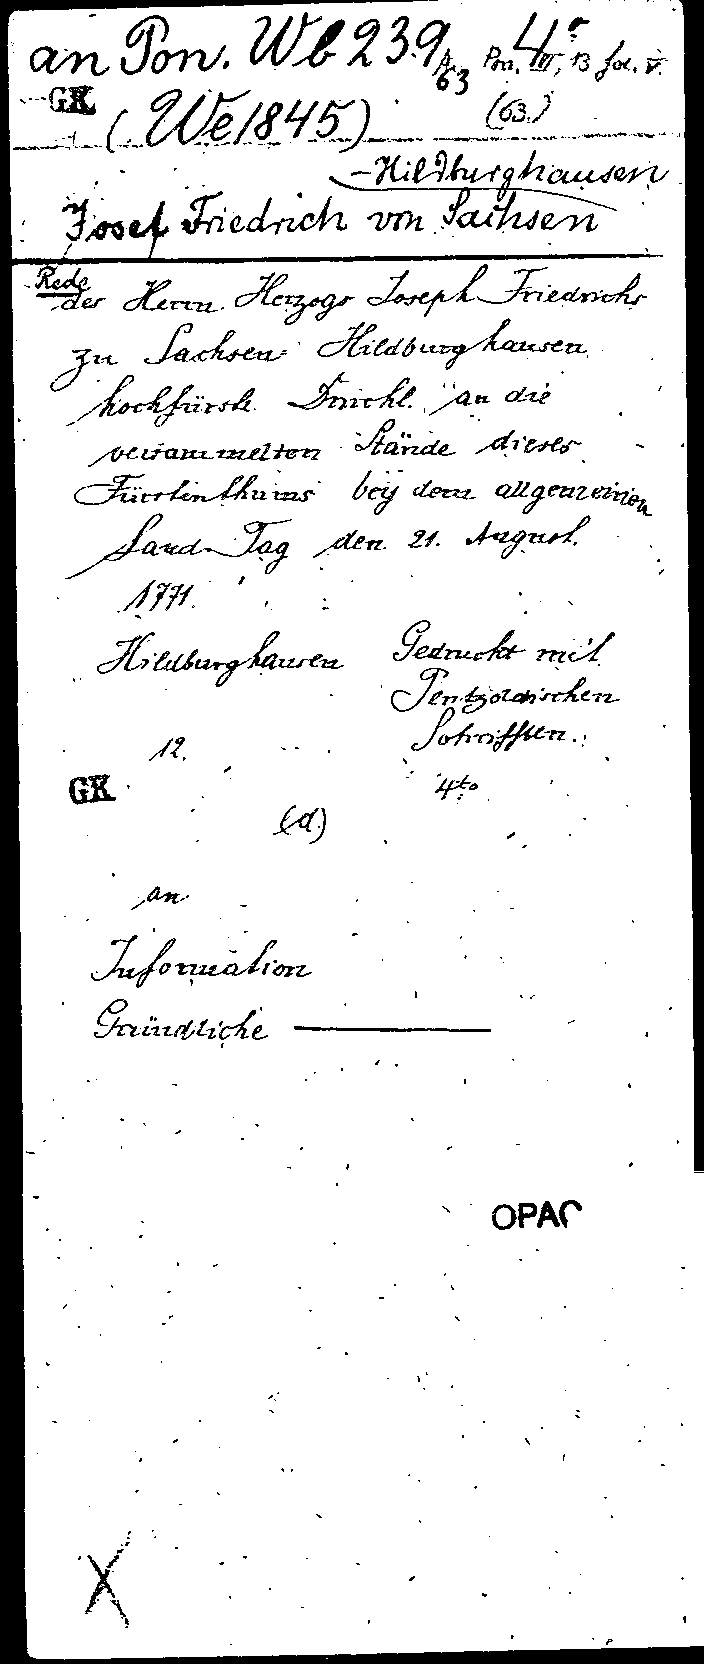 an Pon. Wb 239, 4°
63 Pon. III, 13 fol. V.
GK (We 1845) (63.)
-Hildburghausen
Josef Friedrich von Sachsen
Rede
des Herrn Herzogs Joseph Friedrichs
zu Sachsen Hildburghausen
hochfürstl. Durchl. an die
versammelten Stände dieses
Fürstenthums bey dem allgemeinen
Land-Tag den 21. August.
1771.
Hildburghausen Gedruckt mit
Pentzoldischen
Schrifften.
12. 4to
GK
(d.)
an
Information
Gründliche
OPAC
X